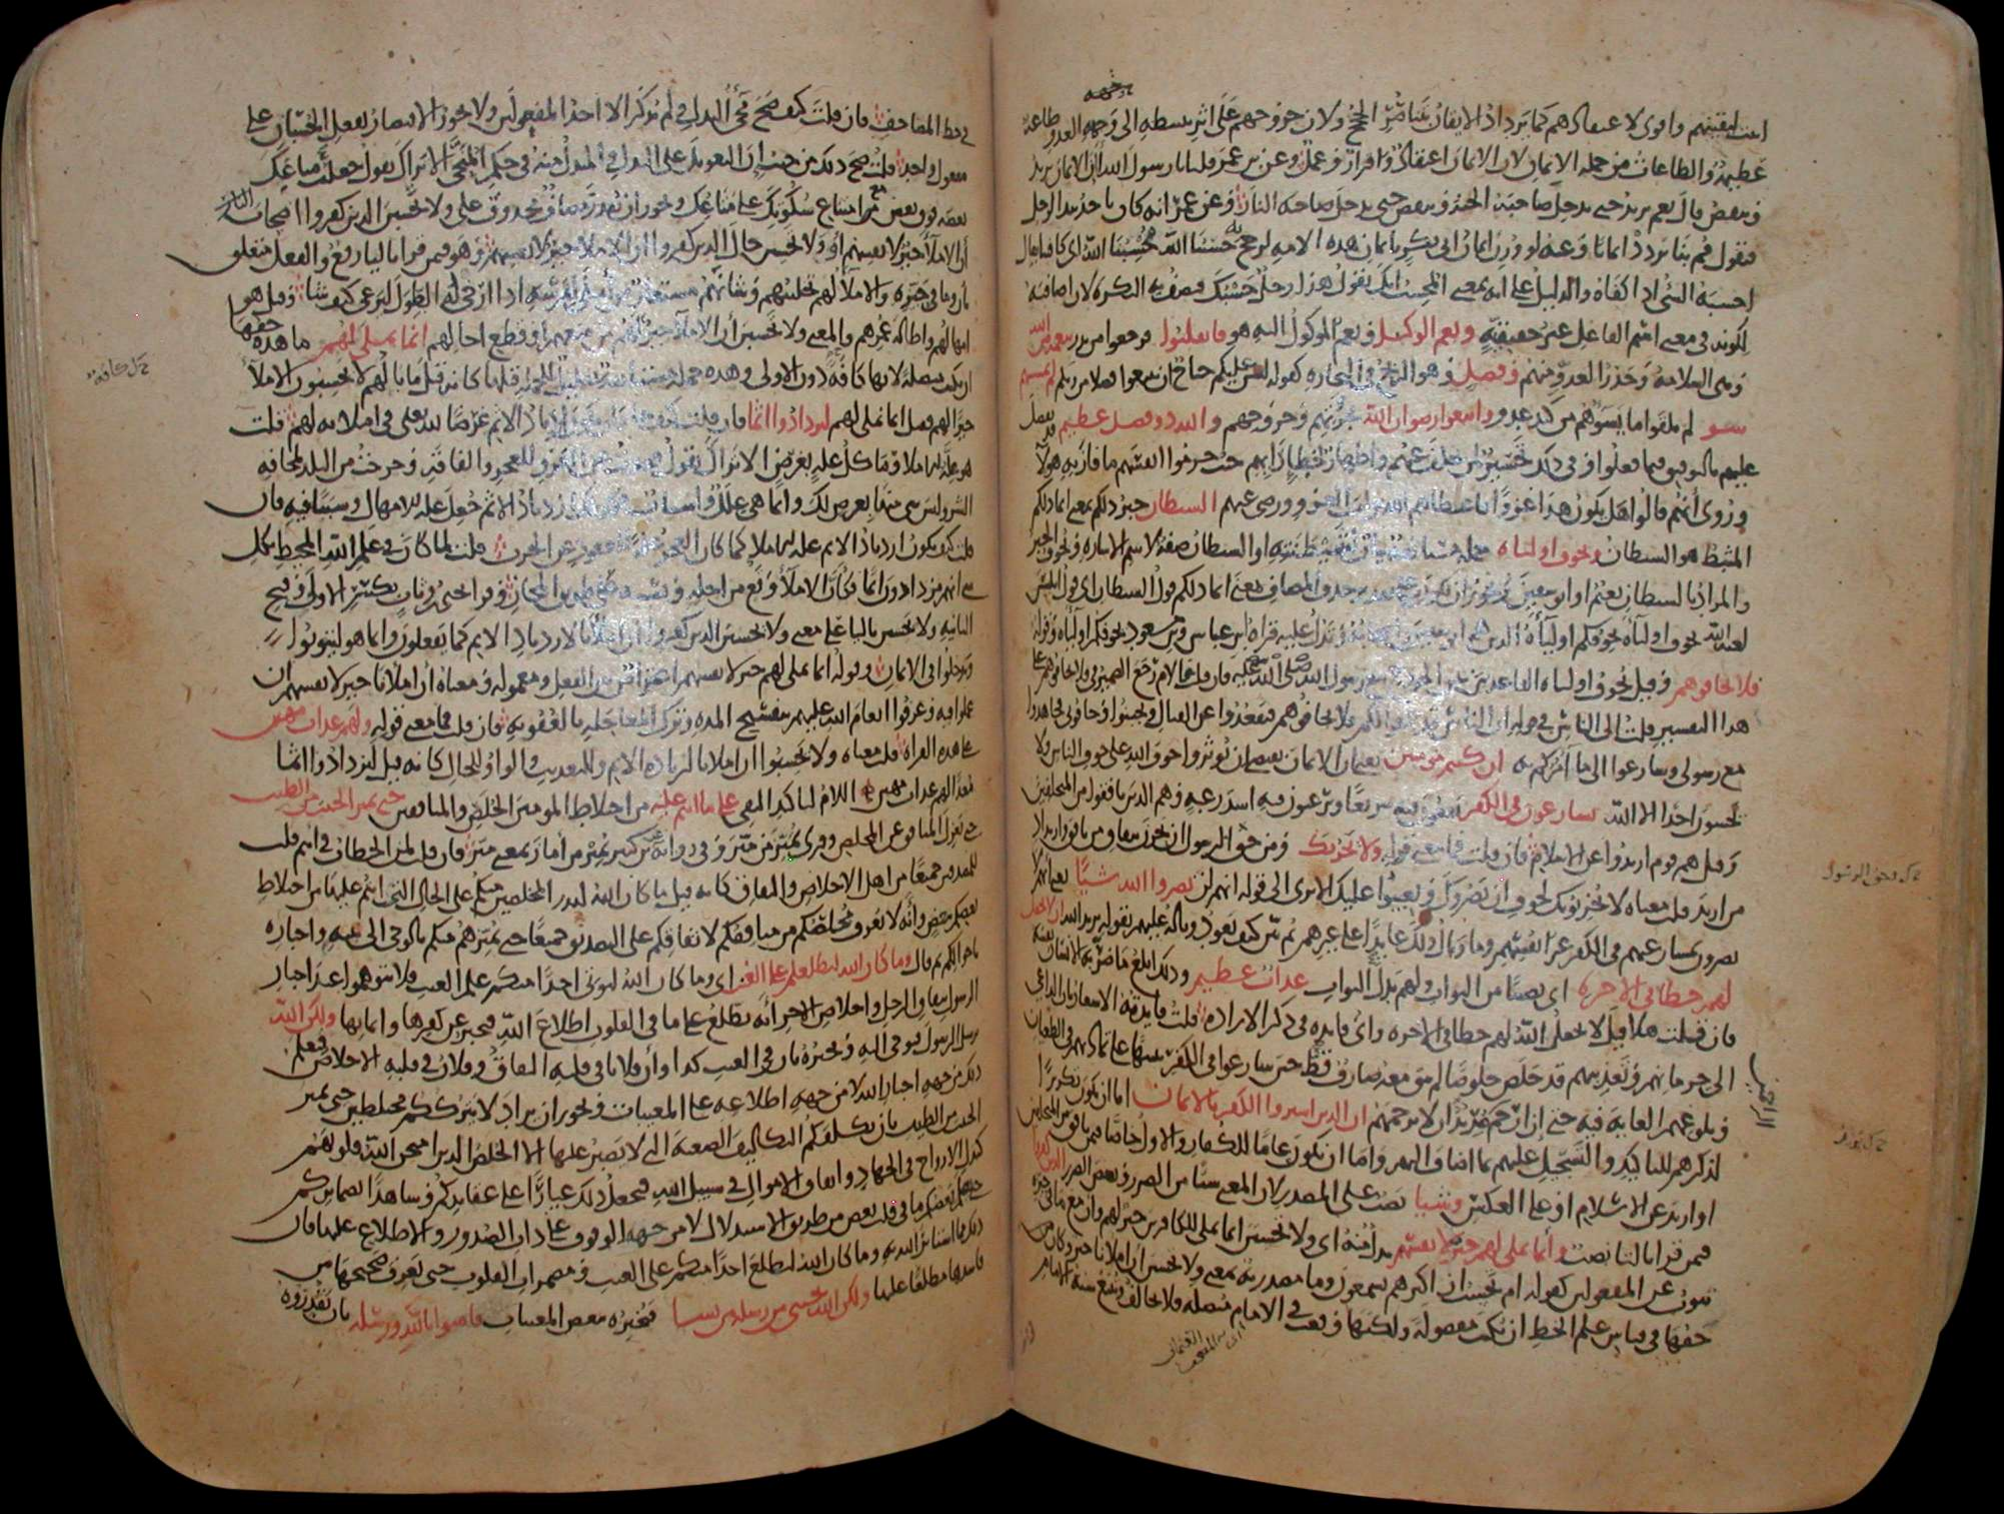 اثبت ليقينهم واقوى لاعتقادهم كما يزداد الايقان بتناصر الحجج ولان خروجهم على اثر تثبيطه الى وجهه العدو طاعة
عظيمة والطاعات من جملة الايمان لان الايمان اعتقاد واقرار وعمل وعن بن عمر قلنا يا رسول الله ان الايمان يزيد
وينقص قال نعم يزيد حتى يدخل صاحبه الجنة وينقص حتى يدخل صاحبه النار وعن عمر انه كان ياخذ بيد الرجل
فيقول قم بنا نزدد ايمانا وعنه لو وزن ايمان ابى بكر بايمان هذه الامه لرجح به حسبنا الله محسبنا الله اى كافينا يقال
احسبه الشئ اذا كفاه والدليل على انه بمعنى المحسب انك تقول هذا رجل حسبك فتصف به النكره لان اضافته
لكونه فى معنى اسم الفاعل غير حقيقيه ونعم الوكيل ونعم الموكول اليه هو فانقلبوا فرجعوا من بدر بنعمة من الله
وهى السلامة وحذر العدو منهم وفضل وهو الربح فى التجاره كقوله ليس عليكم جناح ان تبتغوا فضلا من ربكم لم يمسسهم
سو لم يلقوا ما يسوءهم من كيد عدو واتبعوا رضوان الله بجرءتهم وخروجهم والله ذو فضل عظيم قد تفضل
عليهم بالتوفيق فيما فعلوا وفى ذلك تحسير لمن تخلف عنهم واظهار لخطا رايهم حيث حرموا انفسهم ما فاز به هولا
وروى انهم قالوا هل يكون هذا غزوا فاعطاهم الله ثواب الغزو ورضى عنهم الشيطان خبر ذلكم بمعنى انما ذلكم
المثبط هو الشيطان ويخوف اولياه جملة مستانفة بيان لشيطنته او الشيطان صفة لاسم الاشاره ويخوف الخبر
والمراد بالشيطان نعيم او ابو سفين ويجوز ان يكون على تقدير حذف المضاف بمعنى انما ذلكم قول الشيطان اى قول ابليس
لعنه الله يخوف اولياه يخوفكم اولياءه الذين هم ابو سفين واصحابه وتدل عليه قراة ابن عباس وبن مسعود يخوفكم اولياه وقوله
فلا تخافوهم وقيل يخوف اولياه القاعدين عن الخروج مع رسول الله صلى الله عليه فان قلت فالام رجع الضمير فى فلا تخافوهم على
هذا التفسير قلت الى الناس فى قوله ان الناس قد جمعوا لكم فلا تخافوهم فتقعدوا عن القتال وتجبنوا وخافونى فجاهدوا
مع رسولى وسارعوا الى ما امركم به ان كنتم مومنين يعنى ان الايمان يقتضى ان توثروا خوف الله على خوف الناس ولا
تخشون احدا الا الله يسارعون فى الكفر يقعون فيه سريعا ويرغبون فيه اشد رغبه وهم الذين نافقوا من المتخلفين
وقيل هم قوم ارتدوا عن الاسلام فان قلت فما معنى قوله ولا يحزنك ومن حق الرسول ان يحزن لنفاق من نافق وارتداد
من ارتد قلت معناه لا يحزنوك لخوف ان يضروك ويعينوا عليك الا ترى الى قوله انهم لن يضروا الله شيئا يعنى انهم لا
يضرون بمسارعتهم فى الكفر غير انفسهم وما وبال ذلك عايدا على غيرهم ثم بين كيف يعود وباله عليهم بقوله يريد الله ان لا يجعل
لهم حظا فى الاخره اى نصيبا من الثواب ولهم بدل الثواب عذاب عظيم وذلك ابلغ ما ضر به الانسان نفسه
فان قلت هلا قيل لا يجعل الله لهم حظا فى الاخره واى فايده فى ذكر الاراده قلت فايدته الاشعار بان الداعى
الى حرمانهم وتعذيبهم قد خلص خلوصا لم يبق معه صارف قط حين سارعوا فى الكفر تنبيها على تماديهم فى الطغيان
وبلوغهم الغاية فيه حتى ان ارحم الراحمين يريد ان لا يرحمهم ان الذين اشتروا الكفر بالايمان اما ان يكون تكريرا
لذكرهم للتاكيد والتسجيل عليهم بما اضاف اليهم واما ان يكون عاما للكفار والاول خاصا فيمن نافق من المتخلفين
او ارتد عن الاسلام او على العكس وشيئا نصب على المصدر لان المعنى شيئا من الضرر وبعض الضرر الذين كفروا
فيمن قرا بالتا نصب وانما نملى لهم خير لانفسهم بدل منه اى ولا تحسبن انما نملى للكافرين خير لهم وان مع ما فى حيزه
ينوب عن المفعولين كقوله ام تحسب ان اكثرهم يسمعون وما مصدرية بمعنى ولا تحسبن ان املانا خير وكان من
حقها فى قياس علم الخط ان تكتب مفصوله ولكنها وقعت فى الامام متصله فلا تخالف وتتبع سنة الامام
فى خط المصاحف فان قلت كيف صح مجئ البدل ولم يذكر الا احد المفعولين ولا يجوز الاقتصار بفعل الحسبان على
مفعول واحد قلت صح ذلك من حيث ان التعويل على البدل والمبدل منه فى حكم المنحى الا تراك تقول جعلت متاعك
بعضه فوق بعض مع امتناع سكوتك على متاعك ويجوز ان يقدر مضاف محذوف على ولا تحسبن الذين كفروا اصحاب
ان الاملا خير لانفسهم او ولا تحسبن حال الذين كفروا ان الاملا خير لانفسهم وهو فيمن قرا باليا رفع والفعل متعلق
بان وما فى حيزه والاملا لهم تخليتهم وشانهم مستعار من املى لفرسه اذا ارخى له الطول ليرعى كيف شا وقيل هو
امهالهم واطالة عمرهم والمعنى ولا تحسبن ان الاملا خير لهم من منعهم او قطع اجالهم انما نملى لهم ما هذه حقها
ان تكتب متصلة لانها كافه دون الاولى وهذه جملة مستانفة تعليل للجمله قبلها كانه قيل ما بالهم لا يحسبون الاملا
خيرا لهم فقيل انما نملى لهم ليزدادوا اثما فان قلت كيف جاز ان يكون ازدياد الاثم غرضا لله تعلى فى املائه لهم قلت
هو علة للاملا وما كل علة بغرض الا تراك تقول قعدت عن الغزو للعجز والفاقة وخرجت من البلد لمخافة
الشر وليس شى منها بغرض لك وانما هى علل واسباب فكذلك ازدياد الاثم جعل علة للامهال وسببا فيه فان
قلت كيف يكون ازدياد الاثم علة للاملا كما كان العجز علة للقعود عن الحرب قلت لما كان فى علم الله المحيط بكل
شى انهم مزدادون اثما فكان الاملا وقع من اجله وبسببه على طريق المجاز وقرا يحيى بن وثاب بكسر الاولى وفتح
الثانيه ولا يحسبن باليا على معنى ولا يحسبن الذين كفروا ان املانا لازدياد الاثم كما يفعلون وانما هو ليتوبوا
ويدخلوا فى الايمان وقوله انما نملى لهم خير لانفسهم اعتراض بين الفعل ومعموله ومعناه ان املانا خير لانفسهم ان
عملوا فيه وعرفوا انعام الله عليهم بتفسيح المده وترك المعاجله بالعقوبه فان قلت فما معنى قوله ولهم عذاب مهين
على هذه القراة قلت معناه ولا تحسبوا ان املانا لزيادة الاثم وللتعذيب والواو للحال كانه قيل ليزدادوا اثما
معدا لهم عذاب مهين اللام لتاكيد النفى على ما انتم عليه من اختلاط المومنين الخلص والمنافقين حتى يميز الخبيث من الطيب
حتى يعزل المنافق عن المخلص وقرى يميز من ميز وفى رواية عن بن كثير يميز من اماز بمعنى ميز فان قلت لمن الخطاب فى انتم قلت
للمصدقين جميعا من اهل الاخلاص والنفاق كانه قيل ما كان الله ليذر المخلصين منكم على الحال التى انتم عليها من اختلاط
بعضكم ببعض وانه لا يعرف مخلصكم من منافقكم لاتفاقكم على التصديق جميعا حتى يميزهم منكم بالوحى الى نبيه واخباره
باحوالكم ثم قال وما كان الله ليطلعكم على الغيب اى وما كان الله ليوتى احدا منكم علم الغيب فلا تتوهموا عند اخبار
الرسول بنفاق الرجل واخلاص الاخر انه يطلع على ما فى القلوب اطلاع الله فيخبر عن كفرها وايمانها ولكن الله
يرسل الرسول فيوحى اليه ويخبره بان فى الغيب كذا وان فلانا فى قلبه النفاق وفلان فى قلبه الاخلاص فيعلم
ذلك من جهة اخبار الله لا من جهة اطلاعه على المغيبات ويجوز ان يراد لا يترككم مختلطين حتى يميز
الخبيث من الطيب بان يكلفكم التكاليف الصعبة التى لا يصبر عليها الا الخلص الذين امتحن الله قلوبهم
كبذل الارواح فى الجهاد وانفاق الاموال فى سبيل الله فيجعل ذلك عيارا على عقايدكم وشاهدا بضمايركم
حتى يعلم بعضكم ما فى قلب بعض من طريق الاستدلال لا من جهة الوقوف على ذات الصدور والاطلاع عليها فان
ذلك مما استاثر الله به وما كان الله ليطلع احدا منكم على الغيب ومضمرات القلوب حتى يعرف صحيحها من
فاسدها مطلعا عليها ولكن الله يجتبى من رسله من يشا فيخبره ببعض المغيبات فامنوا بالله ورسله بان تقدروه